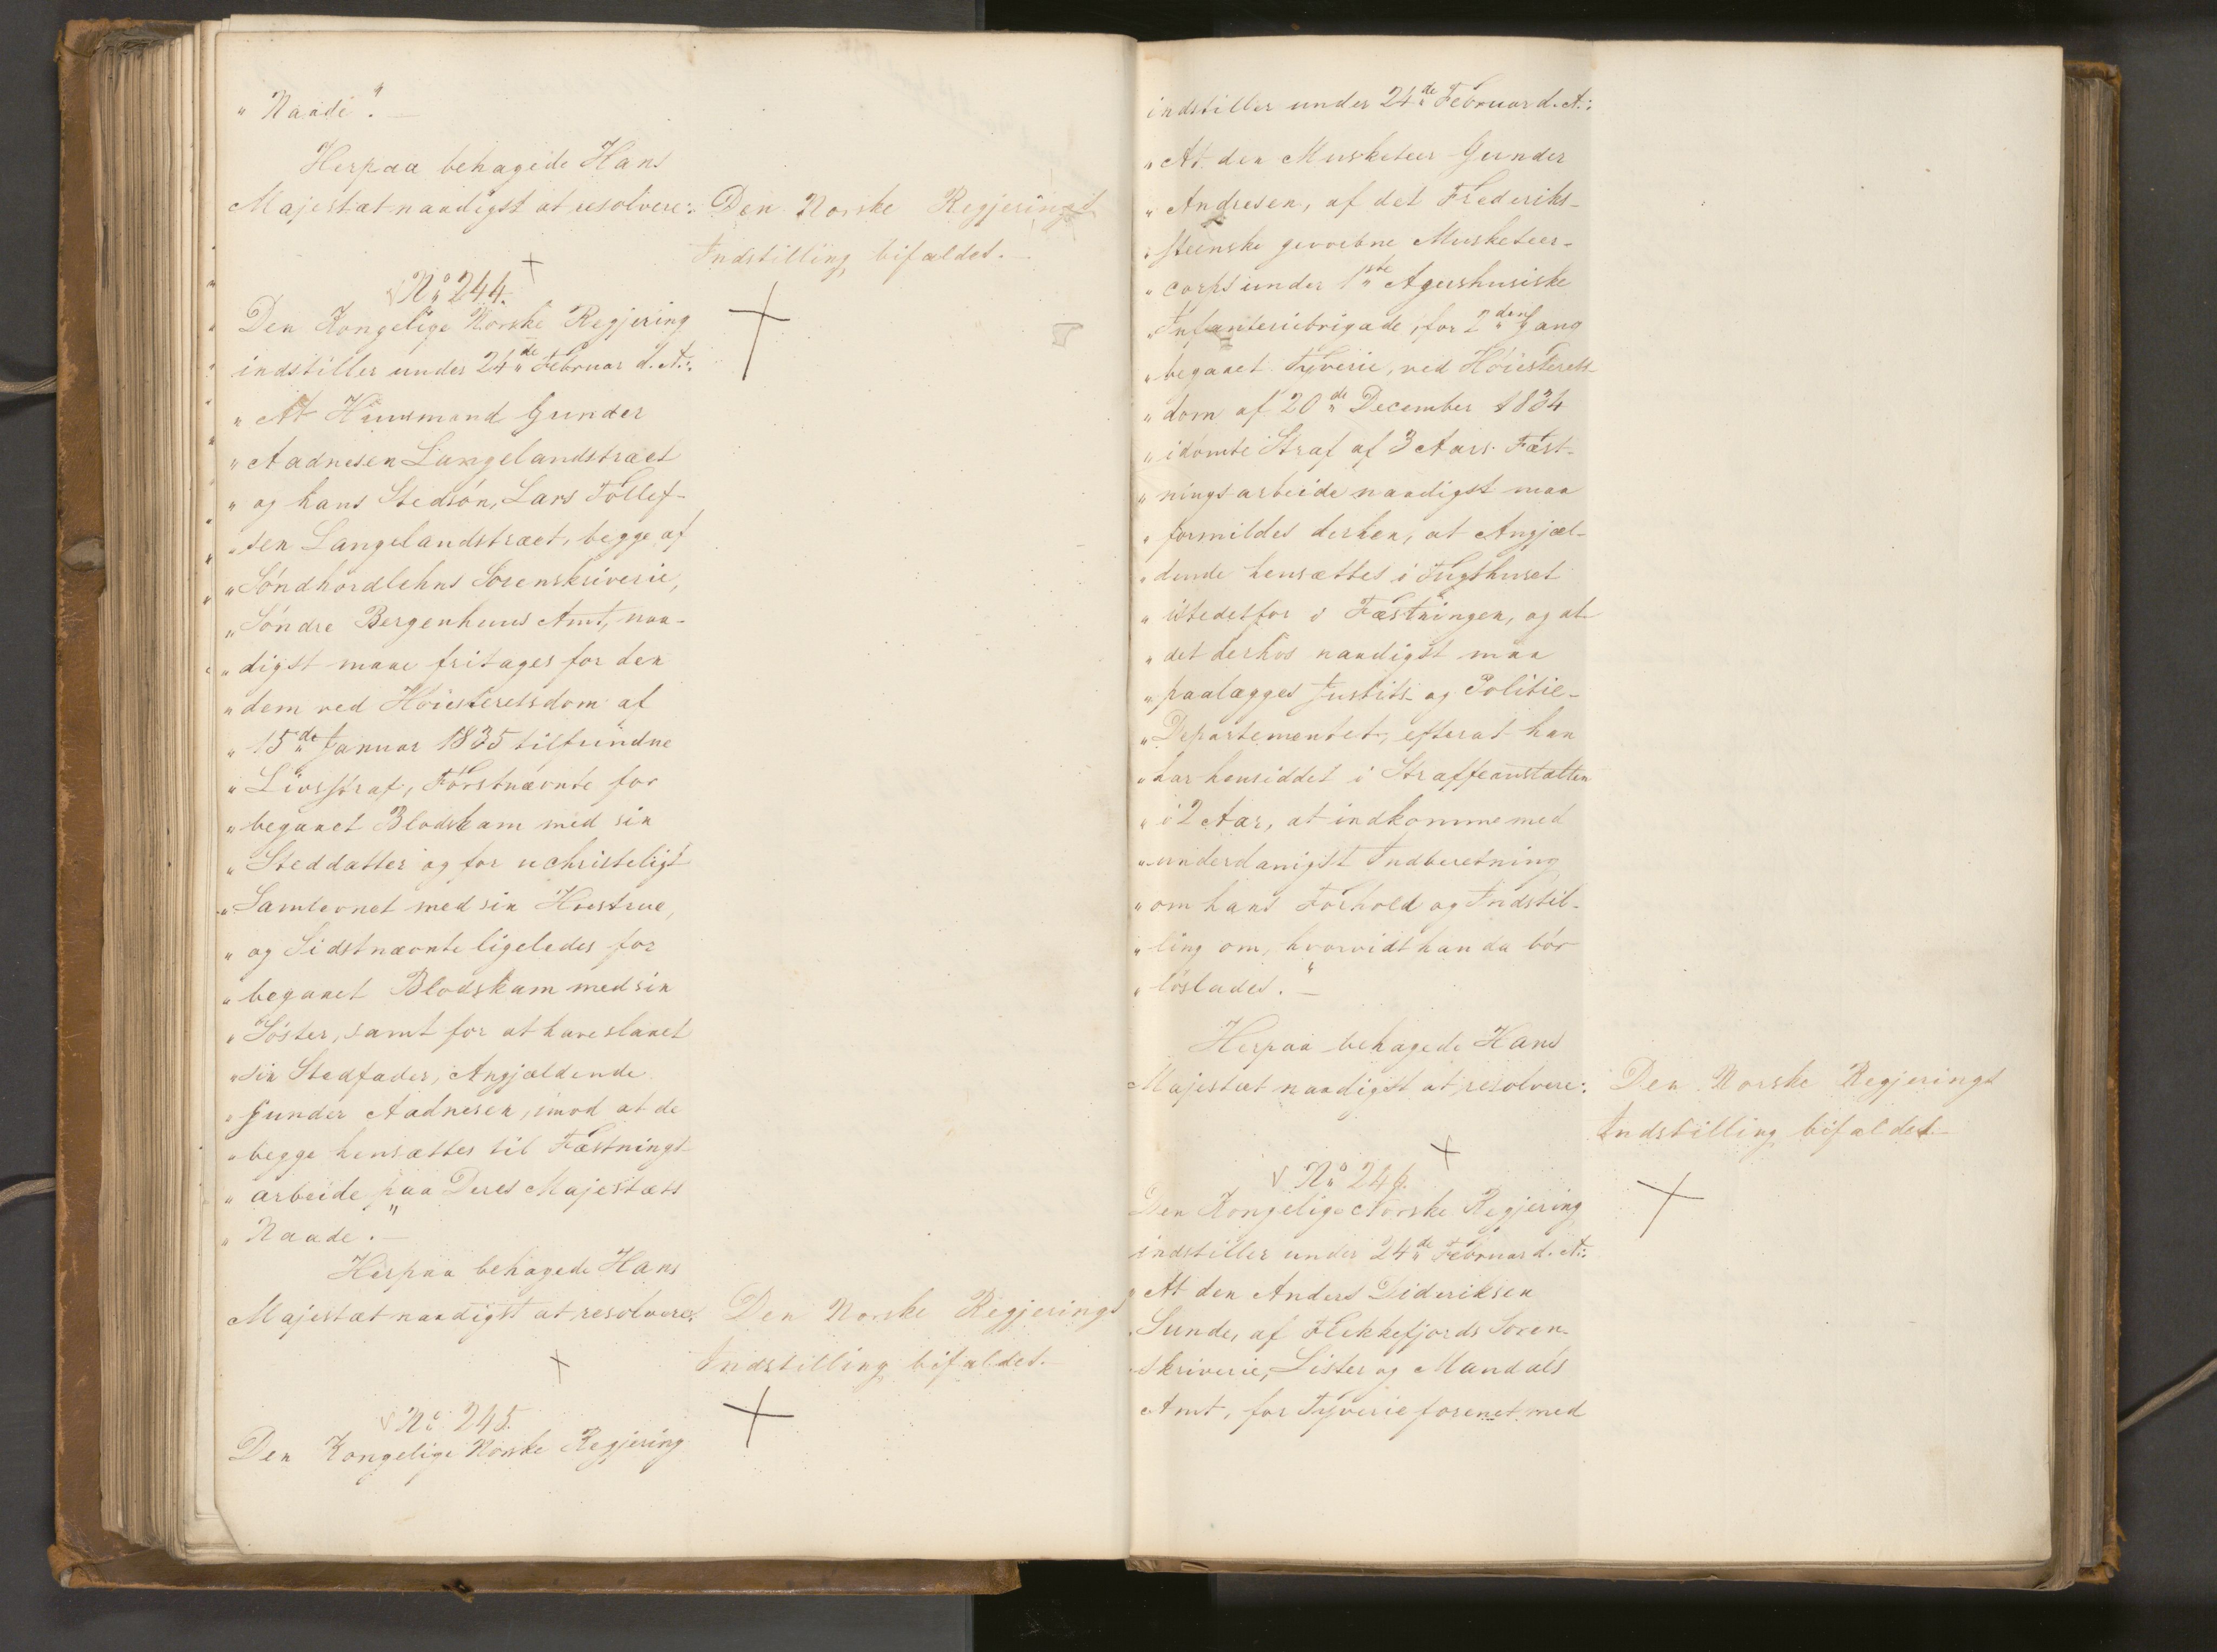 „ Naade“. —
Herpaa behagede Hans
Majestæt naadigst at resolvere:
Den Norske Regjerings
Indstilling bifaldet. —
No 244.
Den Kongelige Norske Regjering
indstiller under 24de Februar d. A.:
„ At Huusmand Gunder
„ Aadnesen Langelandstræet
„ og hans Stedsön, Lars Tollef-
„ sen Langelandstræet, begge af
„ Söndhordlehns Sorenskriverie,
„ Söndre Bergenhuus Amt, naa-
„ digst maae fritages for den
„ dem ved Höiesteretsdom af
„ 15de Januar 1835 tilfundne
„ Livsstraf, Förstnævnte for
„ begaaet Blodskam med sin
„ Steddatter og for uchristeligt
„ Samlevnet med sin Hustrue,
„ og Sidstnævnte ligeledes for
„ begaaet Blodskam med sin
„ Söster, samt for at have slaaet
„ sin Stedfader, Angjældende
„ Gunder Aadnesen, imod at de
„ begge hensættes til Fæstnings-
„ arbeide paa Deres Majestæts
„ Naade“. —
Herpaa behagede Hans
Majestæt naadigst at resolvere:
Den Norske Regjerings
Indstilling bifaldet. —
No 245.
Den Kongelige Norske Regjering
indstiller under 24de Februar d. A.:
„ At den Musketeer Gunder
„ Andresen, af det Frederiks-
„ steenske gevorbne Musketeer-
„ corps under 1ste Agershusiske
„ Infanteriebrigade, for 2den Gang
„ begaaet Tyverie, ved Höiesterets-
„ dom af 20de December 1834
„ idömte Straf af 3 Aars Fæst-
„ ningsarbeide naadigst maa
„ formildes derhen, at Angjæl-
„ dende hensættes i Tugthuset
„ istedetfor i Fæstningen, og at
„ det derhos naadigst maa
„ paalægges Justits- og Politie-
„ Departementet, efterat han
„ har hensiddet i Straffeanstalten
„ i 2 Aar, at indkomme med
„ underdanigst Indberetning
„ om hans Forhold og Indstil-
„ ling om, hvorvidt han da bör
„ löslades.“ —
Herpaa behagede Hans
Majestæt naadigst at resolvere:
Den Norske Regjerings
Indstilling bifaldet. —
No 246.
Den Kongelige Norske Regjering
indstiller under 24de Februar d. A.:
„ At den Anders Dideriksen
„ Sunde, af Flekkefjords Soren-
„ skriverie, Lister og Mandals
Amt, for Tyverie forenet med